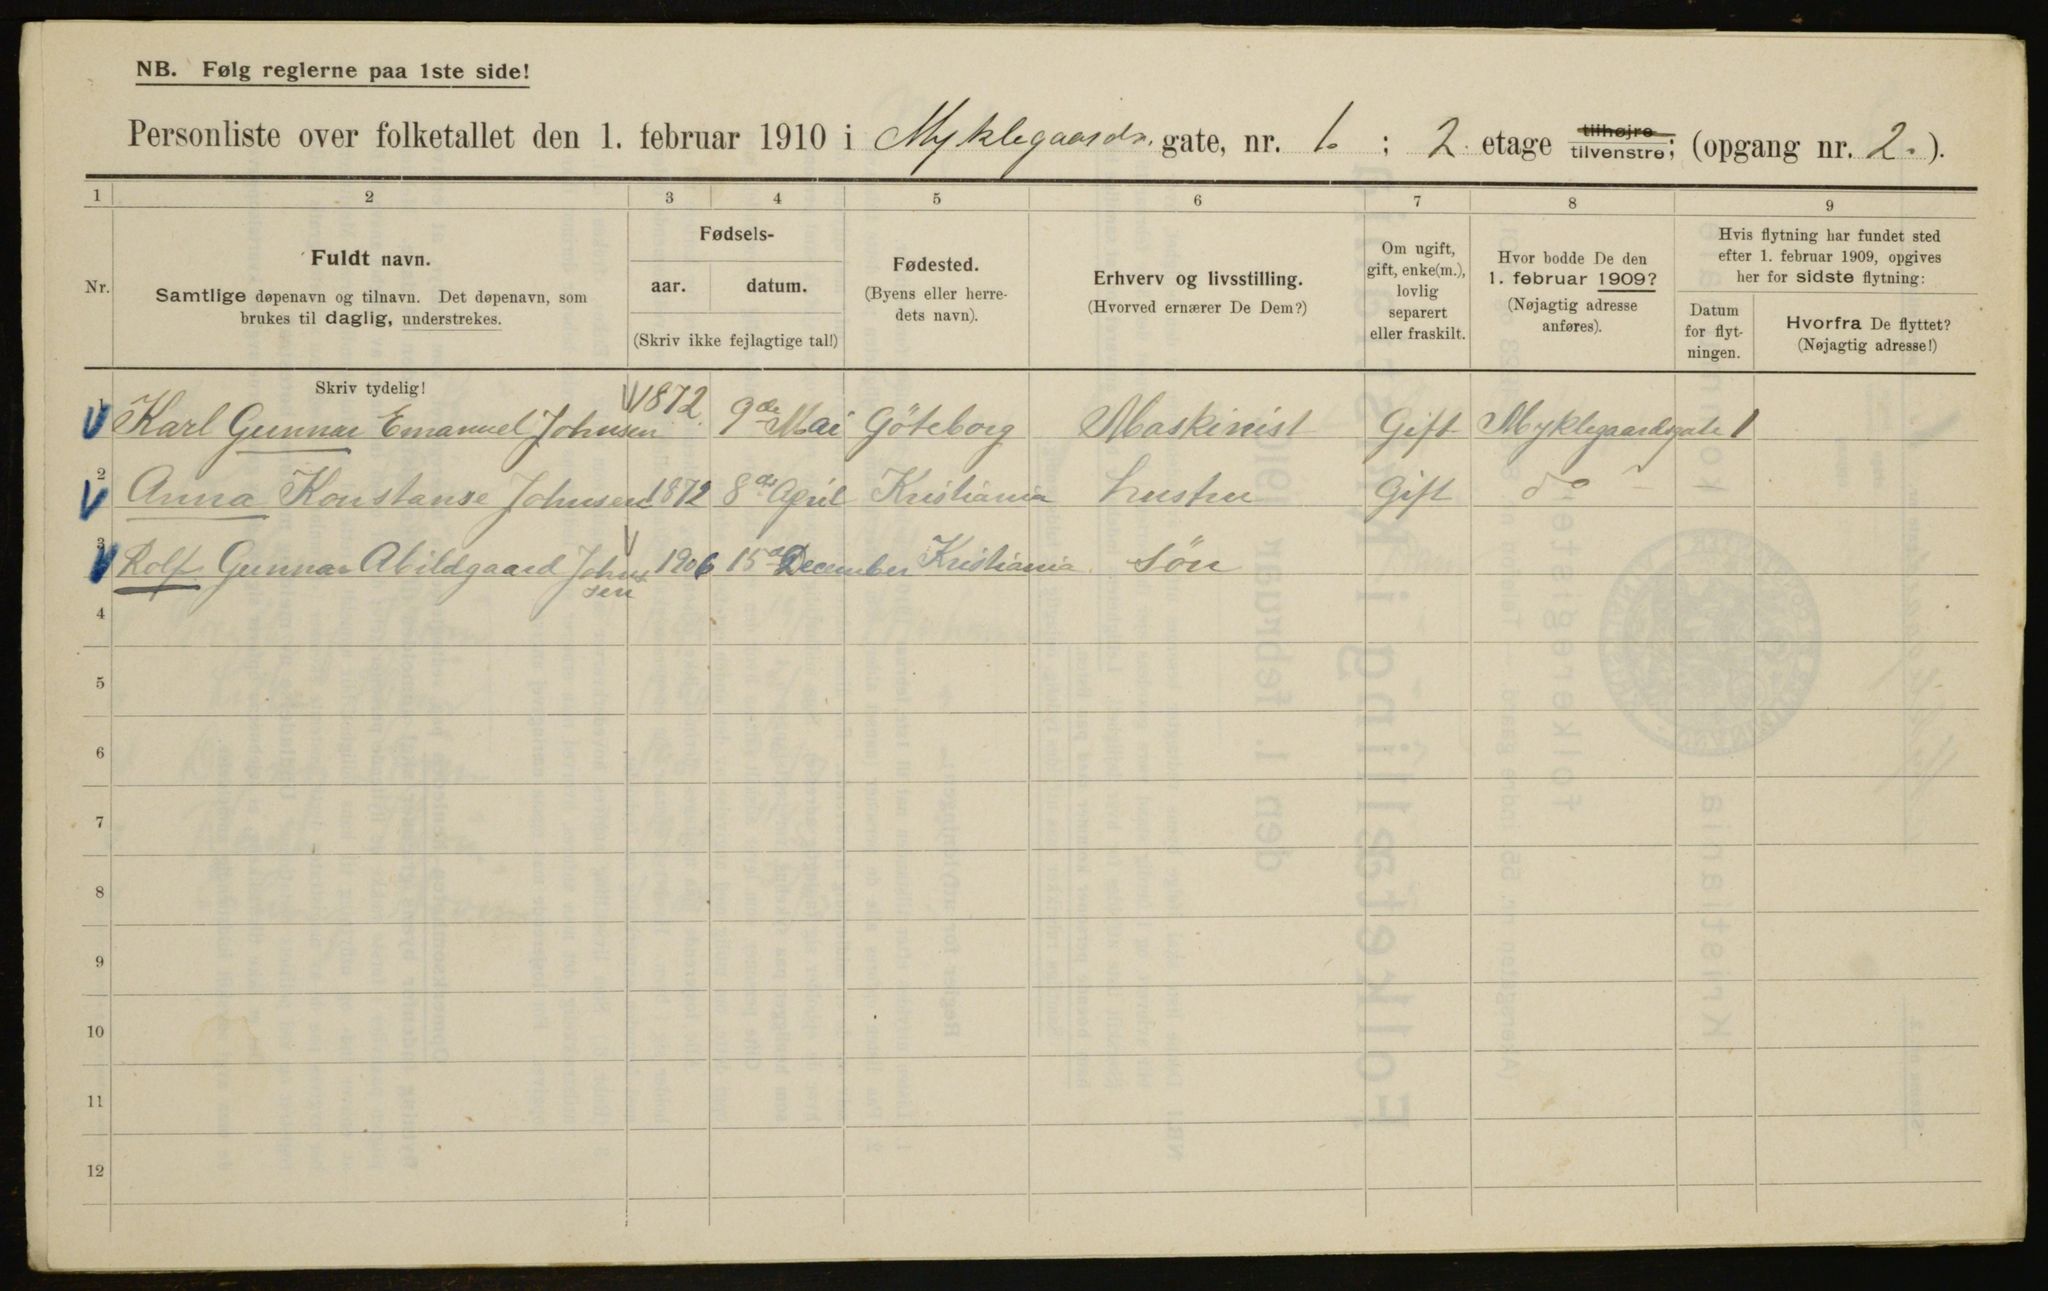 NB. Følg reglerne paa 1ste side!
Personliste over folketallet den 1. februar 1910 i Myklegaards. gate, nr. 1. ; 2 etage tilhøjre tilvenstre; (opgang nr. 2.).
1 2 3 4 5 6 7 8 9
Nr.
Fuldt navn.
Samtlige døpenavn og tilnavn. Det døpenavn, som
brukes til daglig, understrekes.
Fødsels-
aar. datum.
(Skriv ikke fejlagtige tal!)
Fødested.
(Byens eller herre-
dets navn).
Erhverv og livsstilling.
(Hvorved ernærer De Dem?)
Om ugift,
gift, enke(m.),
lovlig
separert
eller fraskilt.
Hvor bodde De den
1. februar 1909?
(Nøjagtig adresse
anføres).
Hvis flytning har fundet sted
efter 1. februar 1909, opgives
her for sidste flytning:
Datum
for flyt-
ningen.
Hvorfra De flyttet?
(Nøjagtig adresse!)
Skriv tydelig!
1 Karl Gunnar Emanuel Johnsen 1872. 9de Mai Göteborg Maskinist Gift Myklegaardsgate 1
2 Anna Konstanse Johnsen 1872 8de April Kristiania hustru Gift do
3 Rolf Gunnar Abildgaard Johnsen 1906 15de December Kristiania søn
4
5
6
7
8
9
10
11
12